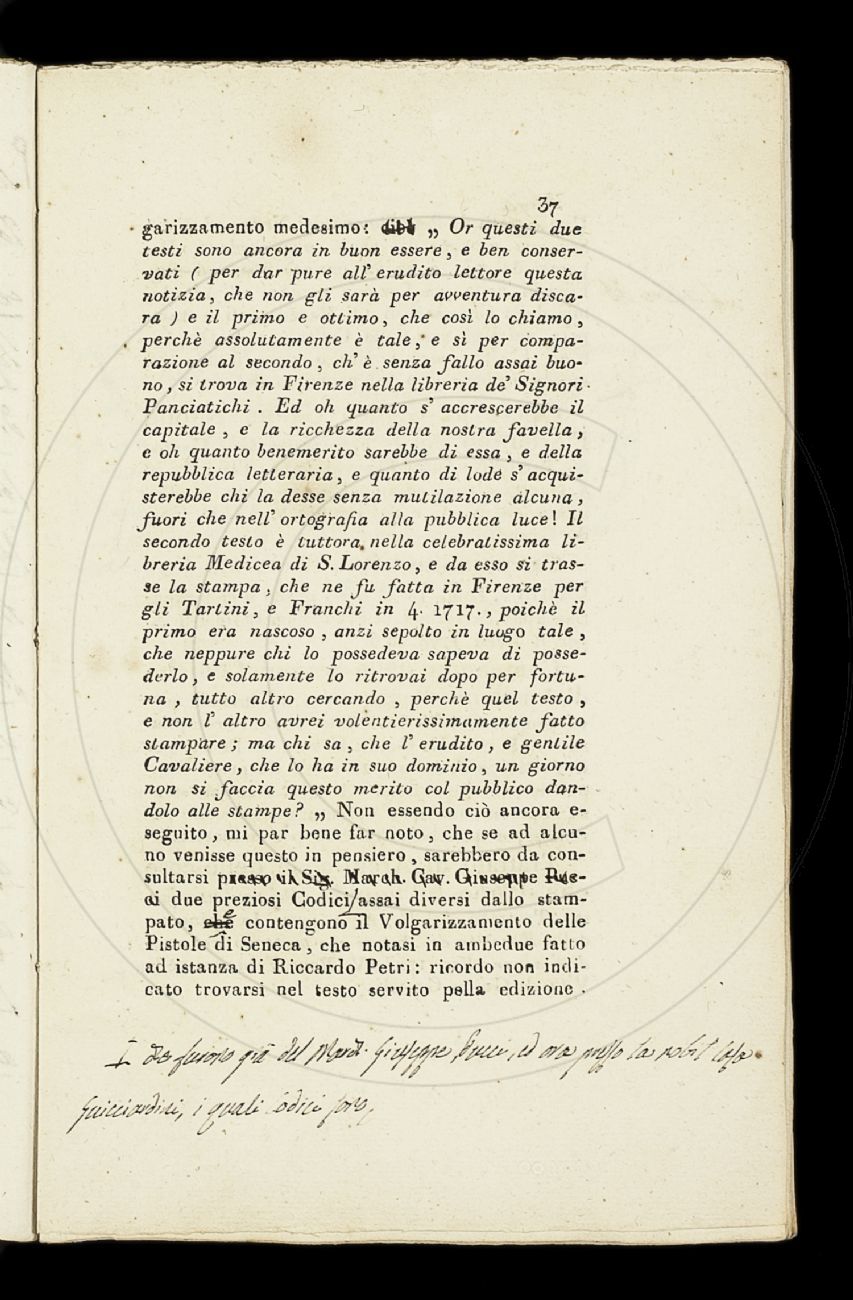 37
garizzamento medesimo: „ Or questi due
testi sono ancora in buon essere, e ben conser-
vati ( per dar pure all' erudito lettore questa
notizia, che non gli sarà per avventura disca-
ra ) e il primo e ottimo, che così lo chiamo,
perchè assolutamente è tale, e sì per compa-
razione al secondo, ch' è senza fallo assai buo-
no, si trova in Firenze nella libreria de' Signori
Panciatichi. Ed oh quanto s' accrescerebbe il
capitale, e la ricchezza della nostra favella,
e oh quanto benemerito sarebbe di essa, e della
repubblica letteraria, e quanto di lode s' acqui-
sterebbe chi la desse senza mutilazione alcuna,
fuori che nell' ortografia alla pubblica luce! Il
secondo testo è tuttora nella celebratissima li-
breria Medicea di S. Lorenzo, e da esso si tras-
se la stampa, che ne fu fatta in Firenze per
gli Tartini, e Franchi in 4. 1717., poichè il
primo era nascoso, anzi sepolto in luogo tale,
che neppure chi lo possedeva sapeva di posse-
derlo, e solamente lo ritrovai dopo per fortu-
na, tutto altro cercando, perchè quel testo,
e non l' altro avrei volentierissimamente fatto
stampare; ma chi sa, che l' erudito, e gentile
Cavaliere, che lo ha in suo dominio, un giorno
non si faccia questo merito col pubblico dan-
dolo alle stampe? „ Non essendo ciò ancora e-
seguito, mi par bene far noto, che se ad alcu-
no venisse questo in pensiero, sarebbero da con-
sultarsi presso il Sig. March. Cav. Giuseppe Puc-
ci due preziosi Codici assai diversi dallo stam-
pato, che contengono il Volgarizzamento delle
Pistole di Seneca, che notasi in ambedue fatto
ad istanza di Riccardo Petri: ricordo non indi-
cato trovarsi nel testo servito pella edizione.
che furono già del March. Giuseppe Pucci, ed ora presso la nobil Casa
Guicciardini, i quali Codici sono,